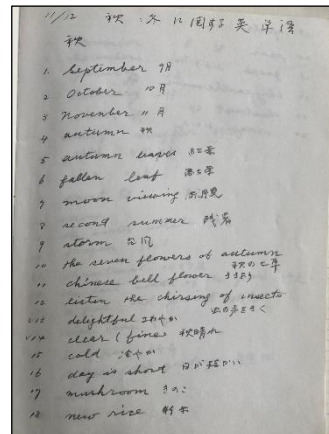 11/12 秋・冬に関する英単語
秋
1. September 9月
2 October 10月
3 November 11月
4 autumn 秋
5 autumn leaves 紅葉
6 fallen leaf 落ち葉
7 moon viewing お月見
8 second summer 残暑
9 storm 台風
10 the seven flowers of autumn
秋の七草
11 chinese bell flower ききょう
12 listen the chirsing of insects
虫の声をきく
13 delightful さわやか
14 clear (fine) 秋晴れ
15 cold 冷やか
16 day is short 日が短かい
17 mushroom きのこ
18 new rice 新米